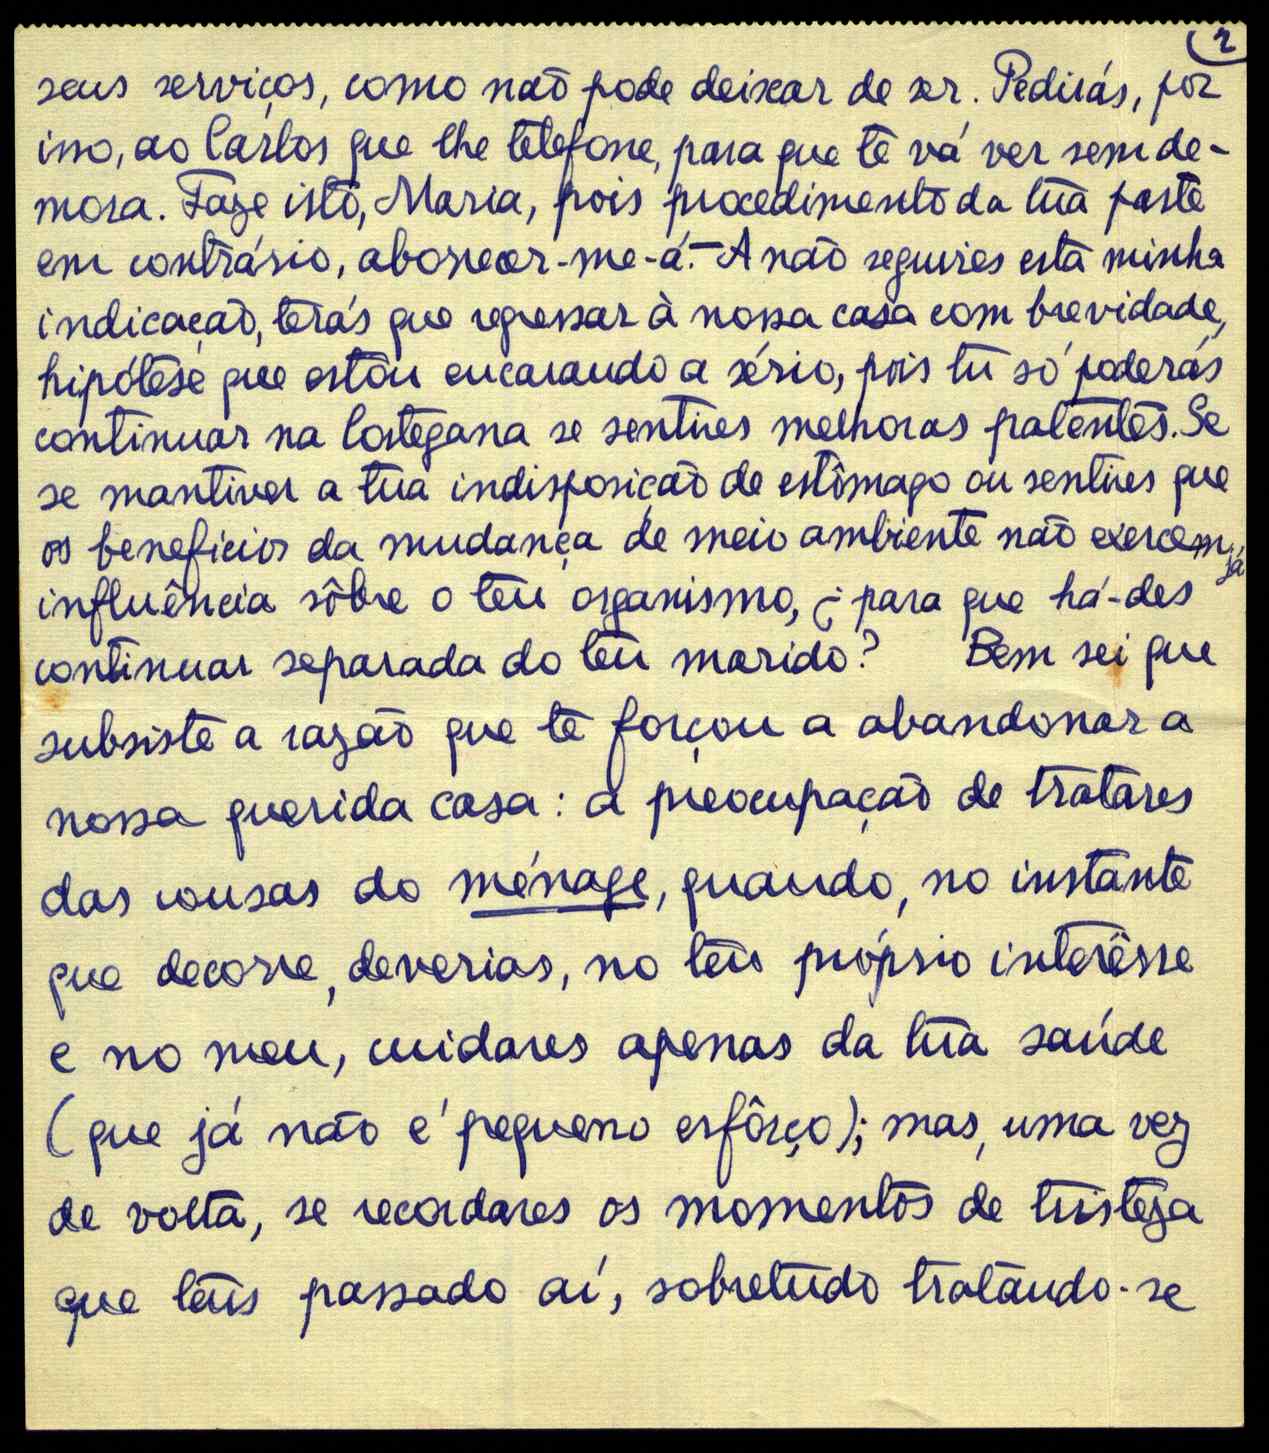 2
seus serviços, como não pode deixar de ser. Pedirás, por
isso, ao Carlos que lhe telefone, para que te vá ver sem de-
mora. Faze isto, Maria, pois procedimento da tua parte
em contrário, aborrecer-me-á. — A não seguires esta minha
indicação, terás que regressar à nossa casa com brevidade,
hipótese que estou encarando a sério, pois tu só poderás
continuar na Cortegana se sentires melhoras patentes. Se
se mantiver a tua indisposição de estômago ou sentires que
os benefícios da mudança de meio ambiente não exercem já
influência sôbre o teu organismo, ¿ para que há-des
continuar separada do teu marido? Bem sei que
subsiste a razão que te forçou a abandonar a
nossa querida casa: a preocupação de tratares
das cousas do ménage, quando, no instante
que decorre, deverias, no teu próprio interêsse
e no meu, cuidares apenas da tua saúde
(que já não é pequeno esfôrço); mas, uma vez
de volta, se recordares os momentos de tristeza
que tens passado aí, sobretudo tratando-se